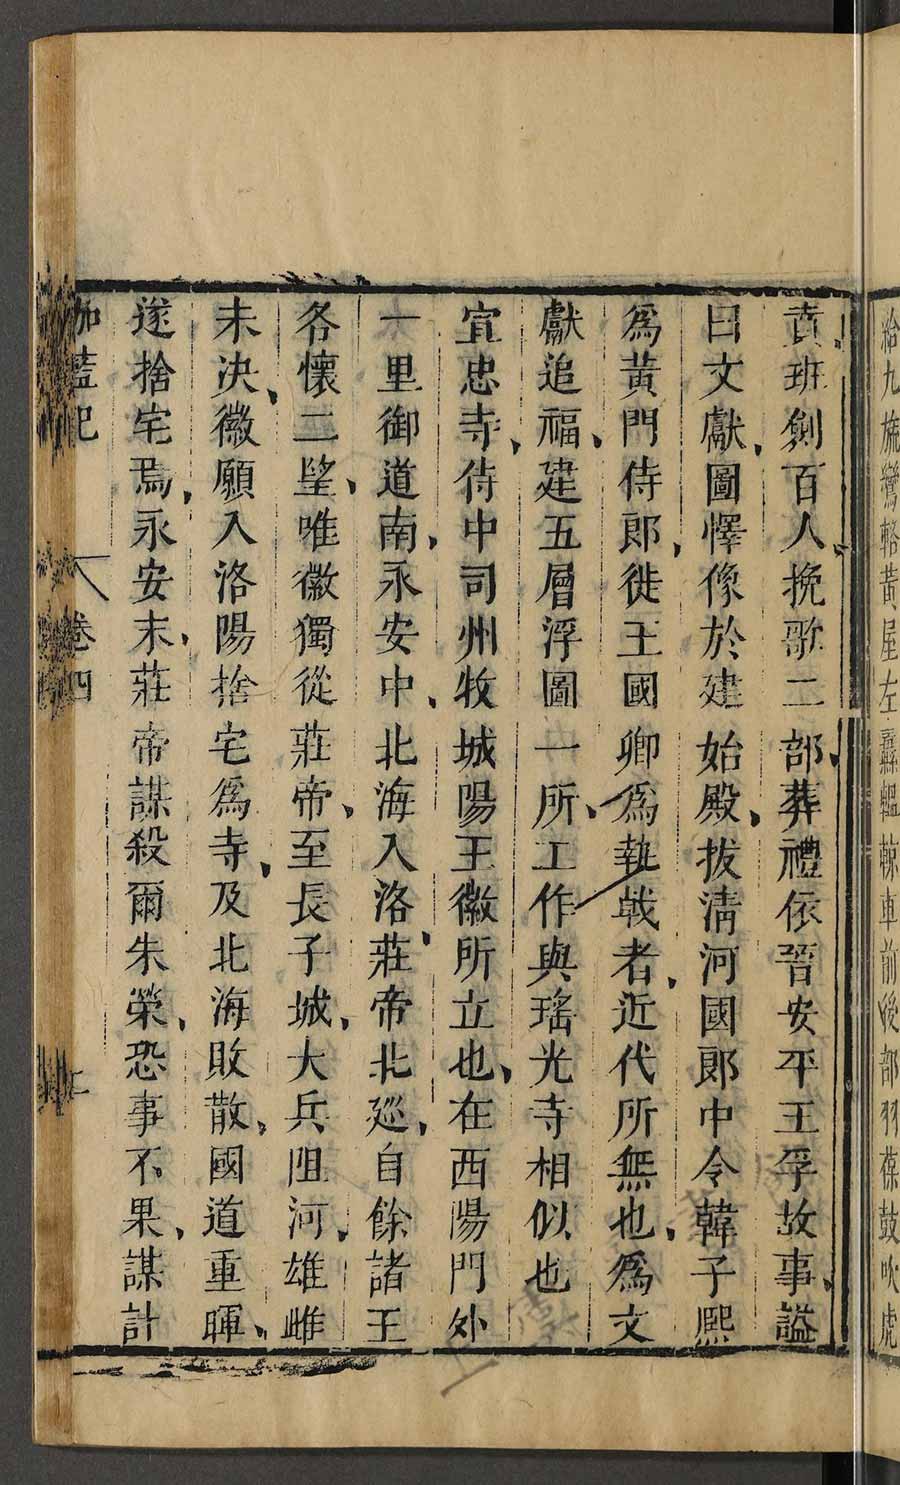 給九旒鸞輅黃屋左纛轀輬車前後部羽葆鼓吹虎
賁班劍百人挽歌二部葬禮依晉安平王孚故事謚
曰文獻圖懌像於建始殿拔清河國郎中令韓子熙
爲黃門侍郎徙王國卿爲執戟者近代所無也爲文
獻追福建五層浮圖一所工作與瑤光寺相似也
宜忠寺侍中司州牧城陽王徽所立也在西陽門外
一里御道南永安中北海入洛莊帝北廵自餘諸王
各懷二望唯徽獨從莊帝至長子城大兵阻河雄雌
未決徽願入洛陽捨宅爲寺及北海敗散國道重暉
遂捨宅焉永安末莊帝謀殺爾朱榮恐事不果謀計
伽藍記 卷四